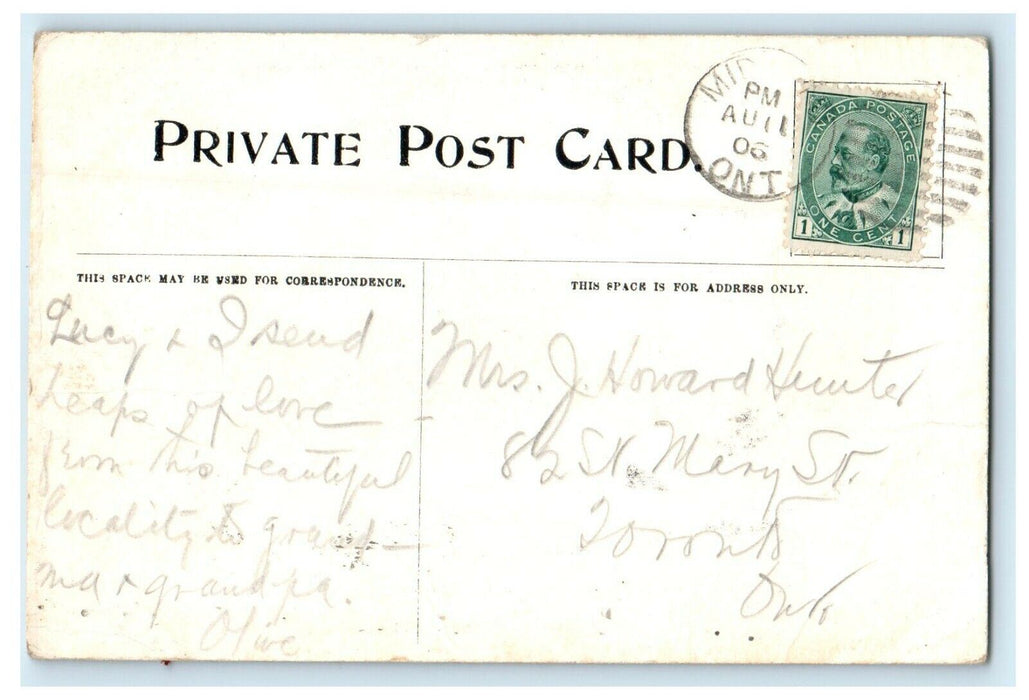 PRIVATE POST CARD.
MID
PM
AU 11
06
ONT
CANADA POSTAGE
ONE CENT
1 1
THIS SPACE MAY BE USED FOR CORRESPONDENCE.
THIS SPACE IS FOR ADDRESS ONLY.
Lucy & I send
heaps of love
from this beautiful
locality to grand-
ma & grandpa.
Olive
Mrs. J. Howard Hunter
82 St. Mary St.
Toronto
Ont.